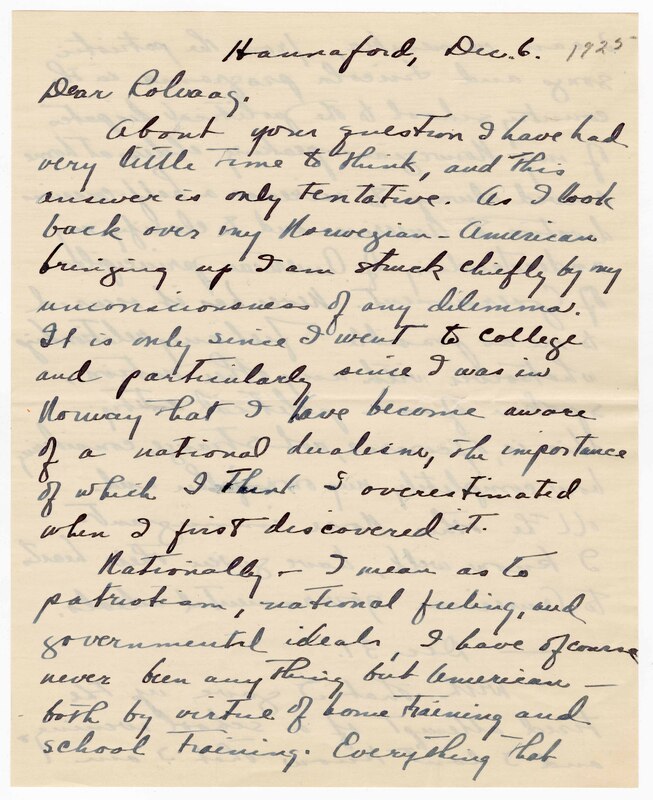 Hannaford, Dec. 6. 1925
Dear Rolvaag.
About your question I have had
very little time to think, and this
answer is only tentative. As I look
back over my Norwegian-American
bringing up I am struck chiefly by my
unconsciousness of any dilemma.
It is only since I went to college
and particularly since I was in
Norway that I have become aware
of a national dualism, the importance
of which I think I overestimated
when I first discovered it.
Nationally - I mean as to
patriotism, national feeling, and
governmental ideals, I have of course
never been anything but American -
both by virtue of home training and
school training. Everything that